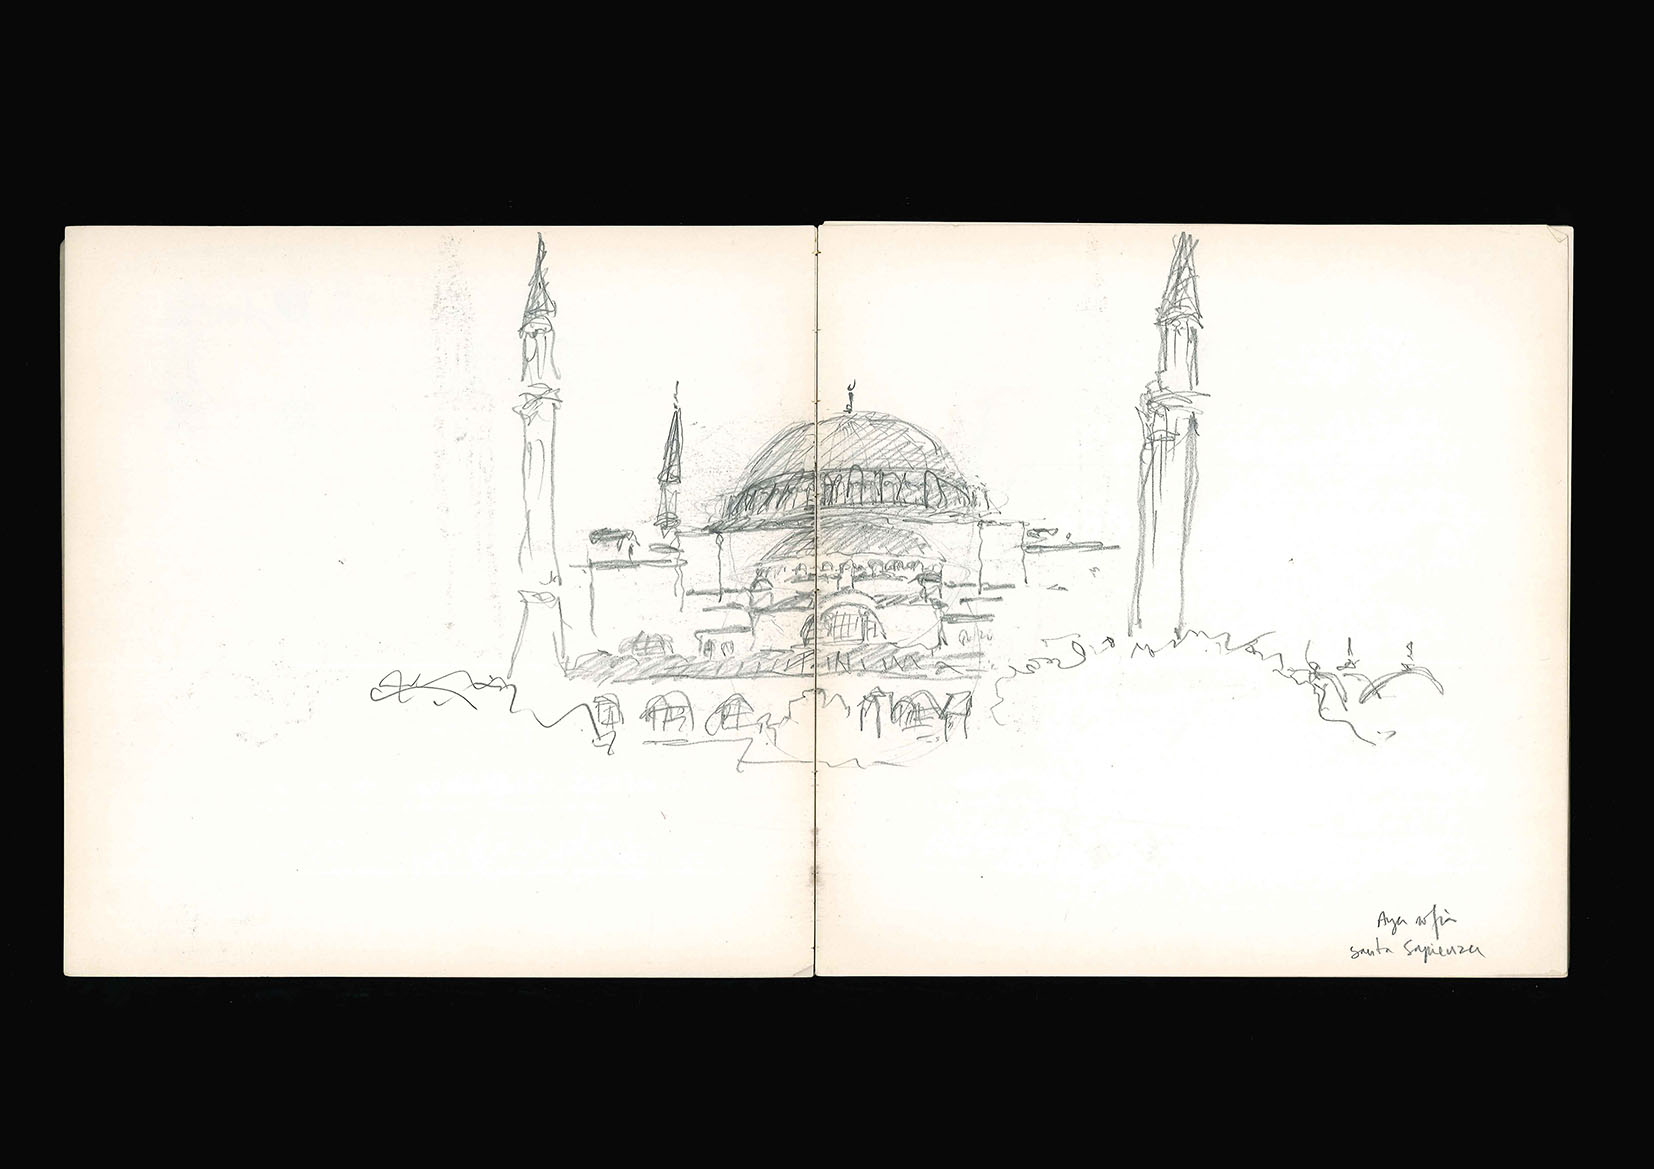 Aya sofia
santa Sapienza